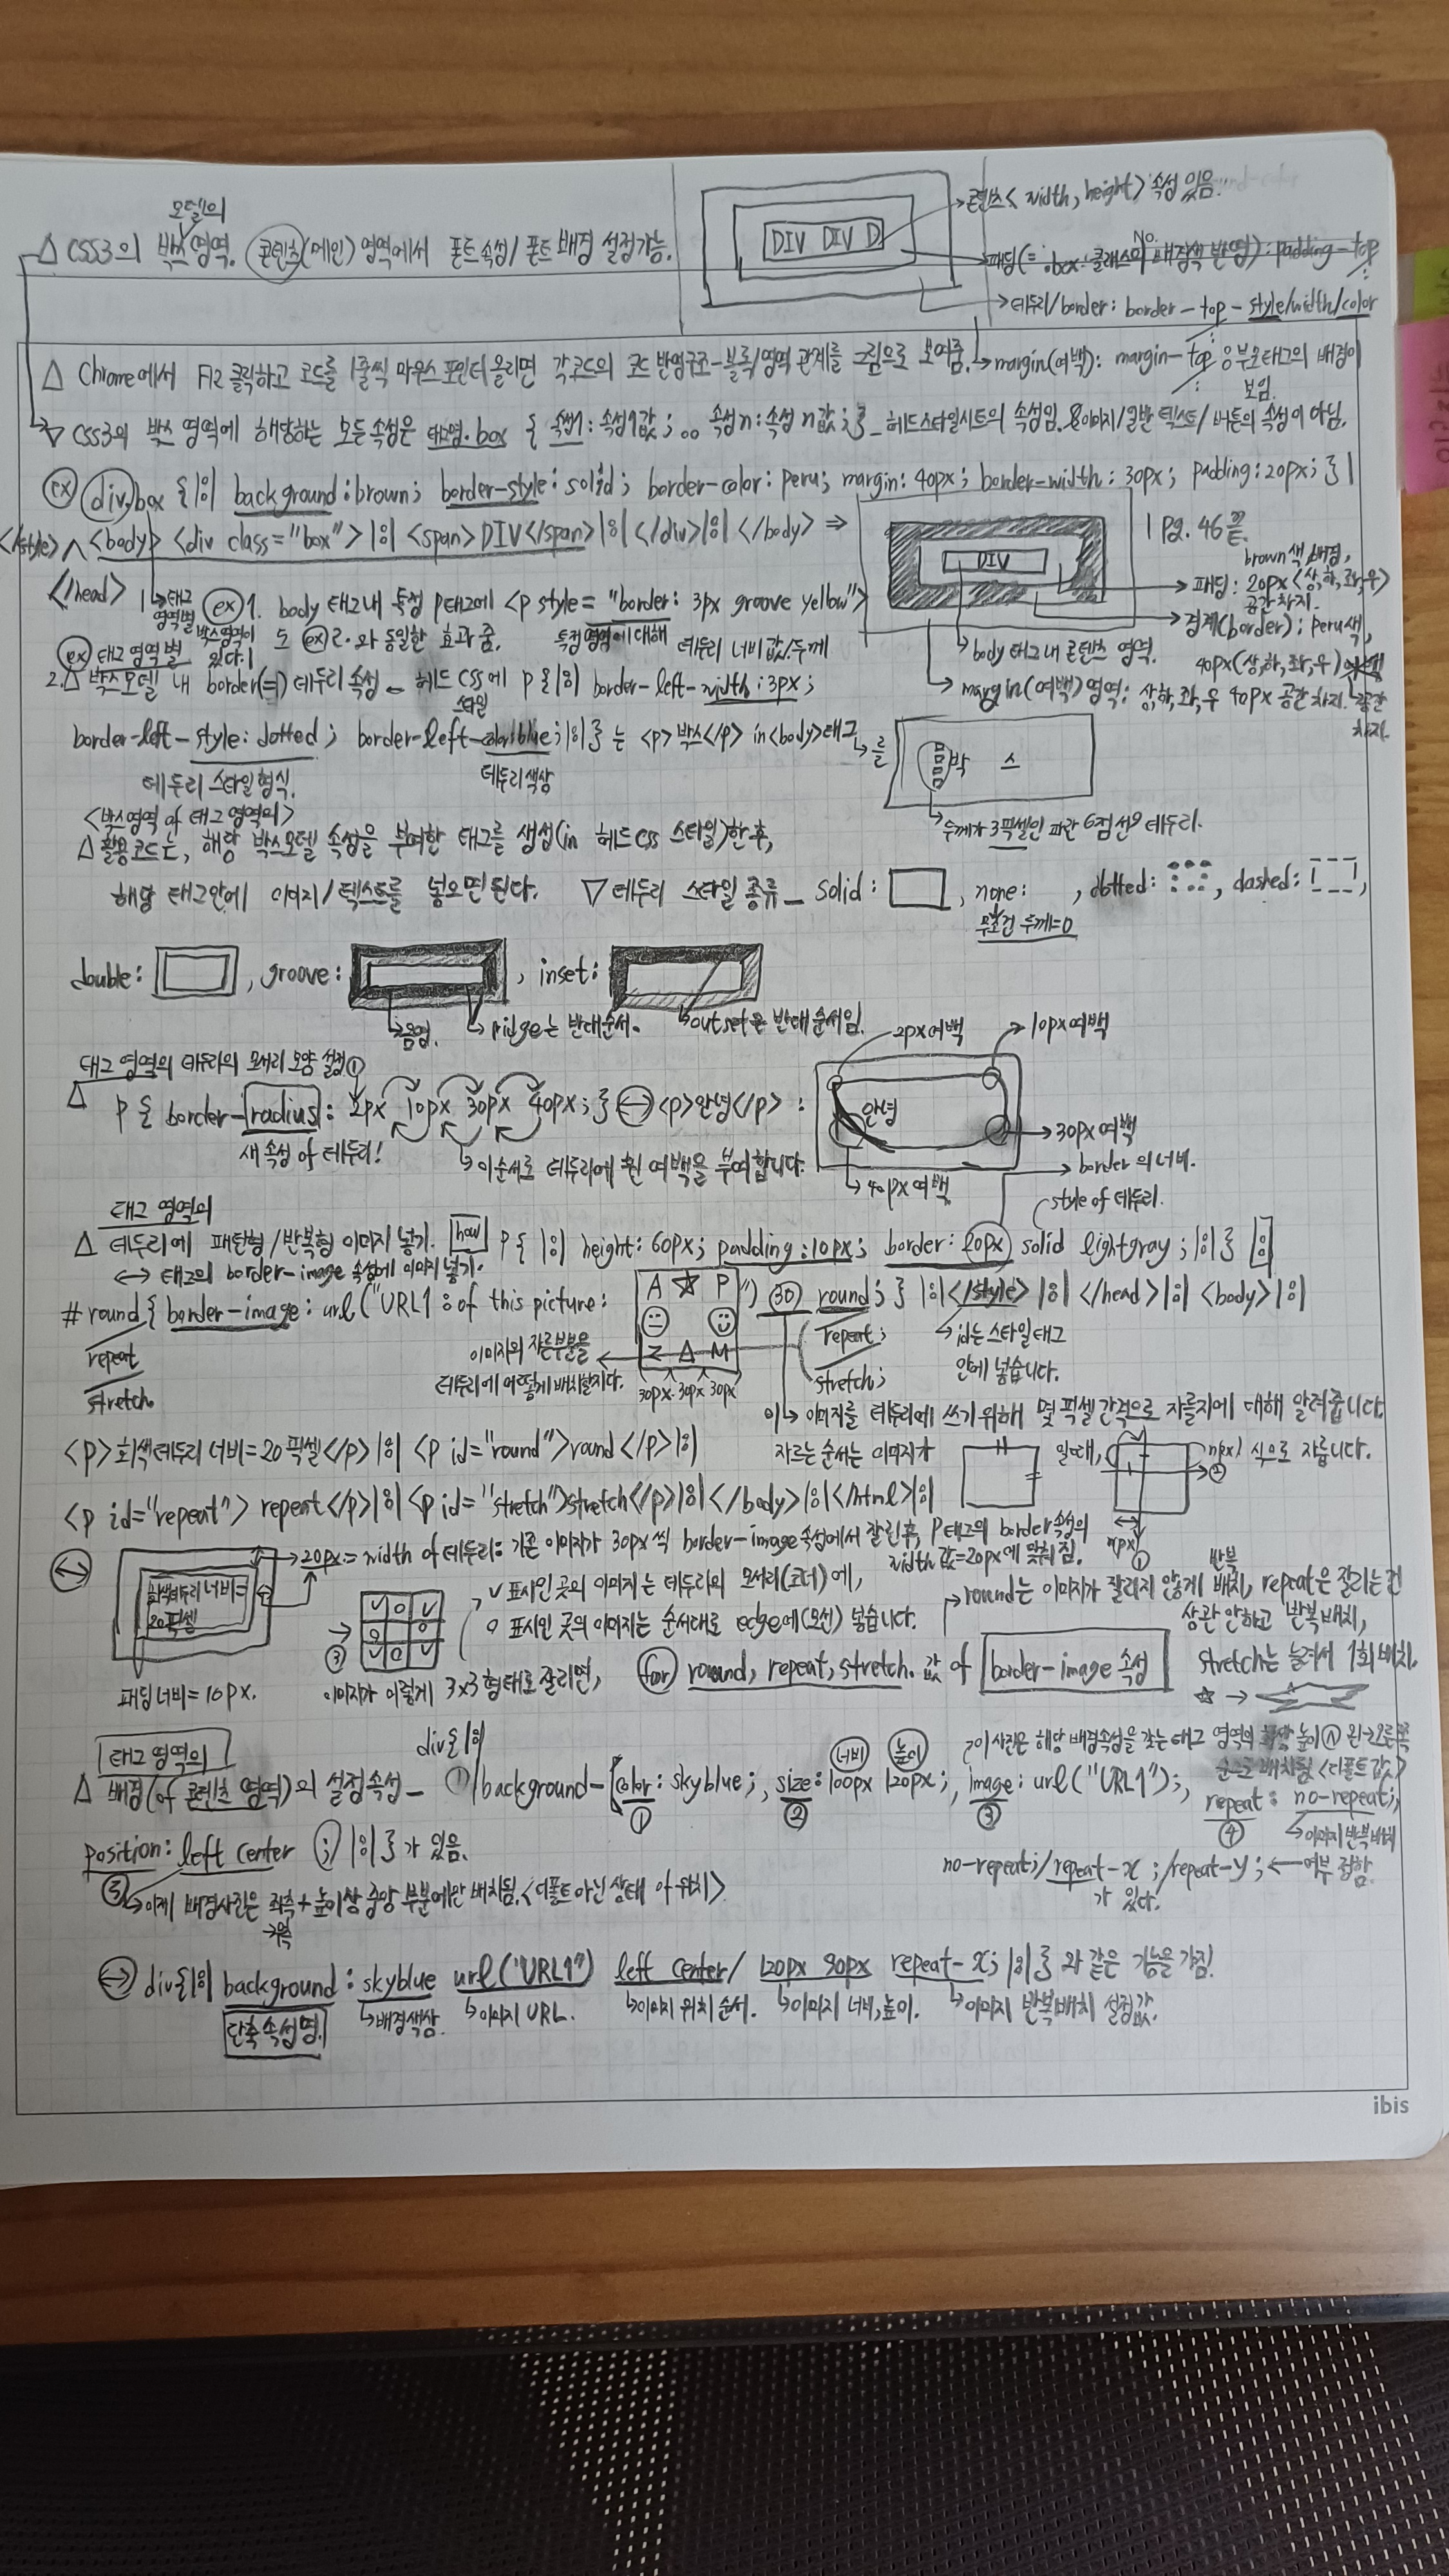 모델의
△ CSS3의 박스 영역. 콘텐츠(메인) 영역에서 폰트속성/폰트 배경 설정가능.
DIV DIV D
콘텐츠< width, height> 속성 있음.
No.
패딩(= .box 클래스의 배경색 반영): padding-top
테두리/border: border-top-style/width/color
△ Chrome에서 F12 클릭하고 코드를 1줄씩 마우스 포인터 올리면 각코드의 코드 반영구조-블록/영역 관계를 그림으로 보여줌.
margin(여백): margin-top 부모태그의 배경이
보임.
▽ CSS3의 박스 영역에 해당하는 모든속성은 태그명.box { 속성1: 속성1값; ... 속성n: 속성n값; } _ 헤드스타일시트의 속성임. 이미지/일반 텍스트/버튼의 속성이 아님.
ex div.box { background: brown; border-style: solid; border-color: peru; margin: 40px; border-width: 30px; padding: 20px; }
</style> <body> <div class="box"> <span> DIV </span> </div> </body> ⇒
</head>
DIV
Pg. 46
brown색 배경,
패딩: 20px <상,하,좌,우>
공간차지.
경계(border): peru색,
40px(상,하,좌,우)
공간
차지.
body 태그내 콘텐츠 영역.
margin(여백) 영역: 상,하,좌,우 40px 공간 차지.
태그
영역별
박스영역이
있다.
ex 1. body 태그내 특정 p태그에 <p style="border: 3px groove yellow">
도 ex 2. 와 동일한 효과 줌.
특정영역에대해
테두리 너비값/두께
ex 태그 영역별
2. △ 박스모델 내 border(=) 테두리 속성 _ 헤드 CSS에 p { border-left-width: 3px;
스타일
border-left-style: dotted; border-left-color: blue; } 는 <p> 박스</p> in <body>태그 를
박 스
테두리 스타일형식.
테두리색상
두께가 3픽셀인 파란 점선 테두리.
<박스영역 of 태그 영역의>
△ 활용코드는, 해당 박스모델 속성을 부여한 태그를 생성(in 헤드 CSS 스타일)한 후,
해당 태그안에 이미지/텍스트를 넣으면 된다. ▽ 테두리 스타일 종류 _ solid: , none: , dotted: , dashed: ,
무조건 두께=0
double: , groove: , inset:
음영.
ridge는 반대순서.
outset은 반대 순서임.
태그 영역의 테두리의 모서리 모양 설정 ①
△ p { border-radius: 2px 10px 30px 40px; } ↔ <p>안녕</p> :
2px여백
10px여백
안녕
30px여백
40px여백
새 속성 of 테두리!
이순서로 테두리에 흰 여백을 부여합니다.
border의 너비.
style of 테두리.
태그 영역의
△ 테두리에 패턴형/반복형 이미지 넣기. how p { height: 60px; padding: 10px; border: 20px solid lightgray; }
↔ 태그의 border-image 속성에 이미지 넣기.
#round { border-image: url("URL1 of this picture: ") 30 round; } </style> </head> <body>
A ☆ P
Z △ M
repeat
stretch
repeat;
stretch;
id는 스타일태그
안에 넣습니다.
이미지의 자른부분을
테두리에 어떻게 배치할지다.
30px 30px 30px
이미지를 테두리에 쓰기 위해 몇 픽셀 간격으로 자를지에 대해 알려줍니다
<p>회색테두리 너비=20픽셀</p> <p id="round">round</p>
자르는 순서는 이미지가 일때, n(px) 식으로 자릅니다.
<p id="repeat"> repeat</p> <p id="stretch">stretch</p> </body> </html>
↔ 20px = width of 테두리: 기존 이미지가 30px 씩 border-image속성에서 잘린후, p태그의 border속성의
width 값=20px에 맞춰 짐.
회색테두리 너비=
20픽셀
패딩너비=10px.
③
v 표시인 곳의 이미지는 테두리의 모서리(코너)에,
o 표시인 곳의 이미지는 순서대로 edge에(모선) 넣습니다.
이미지가 이렇게 3x3형태로 잘리면,
반복
round는 이미지가 잘리지 않게 배치, repeat은 잘리는건
상관 안하고 반복배치,
stretch는 늘려서 1회 배치.
for round, repeat, stretch. 값 of border-image 속성
태그 영역의
div {
△ 배경(of 콘텐츠 영역)의 설정속성 _ background- color: skyblue; , size: 100px 120px; , image: url("URL1"); ,
① ② ③
너비 높이
이 사진은 해당 배경속성을 갖는 태그 영역의 높이 왼→오른쪽
순으로 배치됨 <디폴트값>
repeat: no-repeat;
④ 이미지 반복배치
여부 정함.
position: left center ; } 가 있음.
no-repeat;/repeat-x;/repeat-y;
가 있다.
⑤ 이제 배경사진은 좌측+높이상 중앙 부분에만 배치됨.<디폴트 아닌 상태 of 위치>
↔ div { background: skyblue url("URL1") left center/ 120px 90px repeat-x; } 와 같은 기능을 가짐.
단축 속성명.
배경색상.
이미지 URL.
이미지 위치 순서.
이미지 너비,높이.
이미지 반복배치 설정값.
ibis